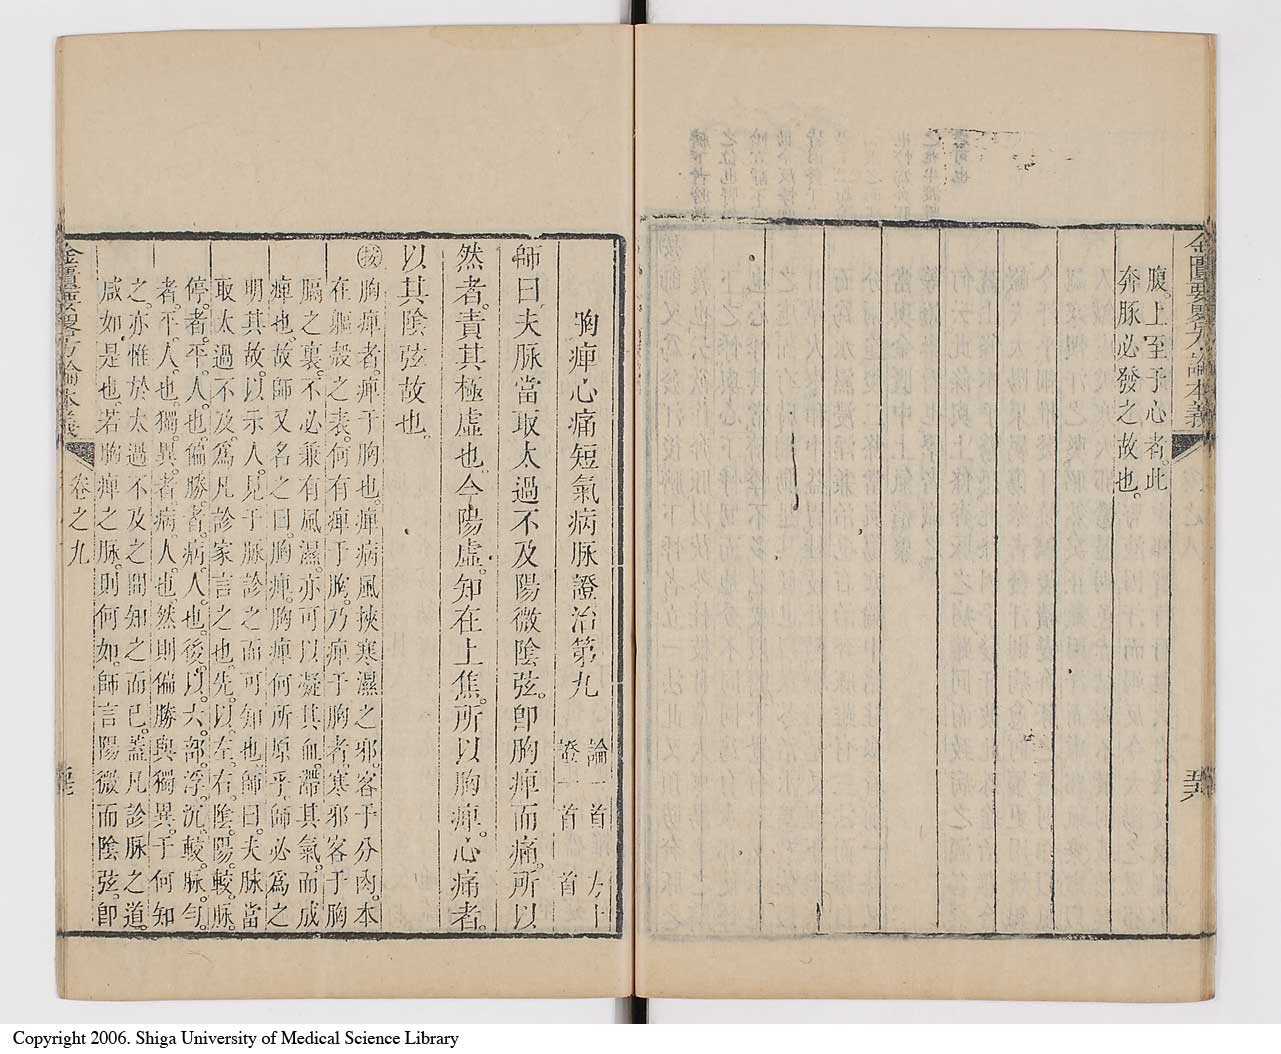 金匱要畧方論本義
腹。上至于心者。此
奔豚必發之故也。
胸痺心痛短氣病脉證治第九
論一首
證一首
方十
首
師曰。夫脉當取太過不及。陽微陰弦。卽胸痺而痛。所以
然者。責其極虛也。今陽虛。知在上焦。所以胸痺。心痛者。
以其陰弦故也。
按胸痺者。痺于胸也。痺病風挾寒濕之邪。客于分肉。本
在軀殻之表。何有痺于胸。乃痺于胸者。寒邪客于胸
膈之裏。不必兼有風濕。亦可以凝其血。滯其氣。而成
痺也。故師又名之曰。胸痺。胸痺何所原乎。師必爲之
明其故。以示人。見于脉診之而可知也。師曰。夫脉當
取太過不及。爲凡診家言之也。先。以左右。陰。陽。較。脉。
停。者。平。人。也。偏。勝。者。病。人。也。後。以。六。部。浮。沉。較。脉。勻。
者。平。人。也。獨。異。者。病。人也。然則偏勝與獨異。于何知
之。亦惟於太過不及之間知之而已。蓋凡診脉之道。
咸如是也。若胸痺之脉。則何如。師言陽微而陰弦。卽
金匱要畧方論本義
卷之九
Copyright 2006. Shiga University of Medical Science Library